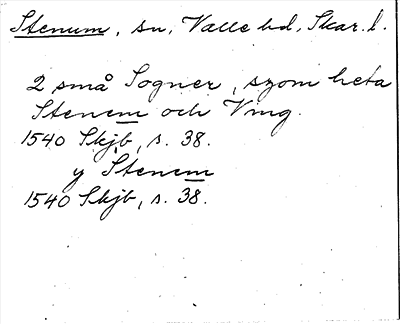 Stenum, sn, Valle hd, Skar. l.
2 små Sogner, szom heta
Stenem och Ving.
1540 Skjb, s. 38.
y Stenem
1540 Skjb, s. 38.